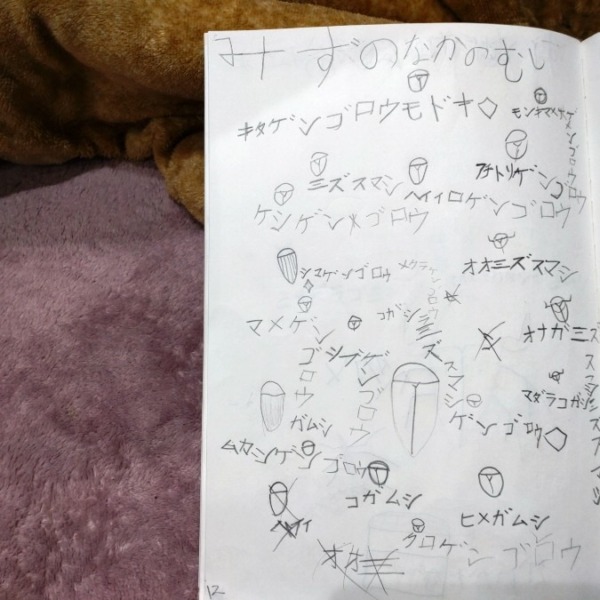 みずのなかのむし
キタゲンゴロウモドキ
モンキマメゲンゴロウ
ミズスマシ
ハイイロゲンゴロウ
ケシゲンゴロウ
シマゲンゴロウ
メクラゲンゴロウ
オオミズスマシ
マメゲンゴロウ
コガシラミズスマシ
オナガミズスマシ
シブゲンゴロウ
ガムシ
ゲンゴロウ
ムカシゲンゴロウ
コガムシ
ヒメガムシ
クロゲンゴロウ
12